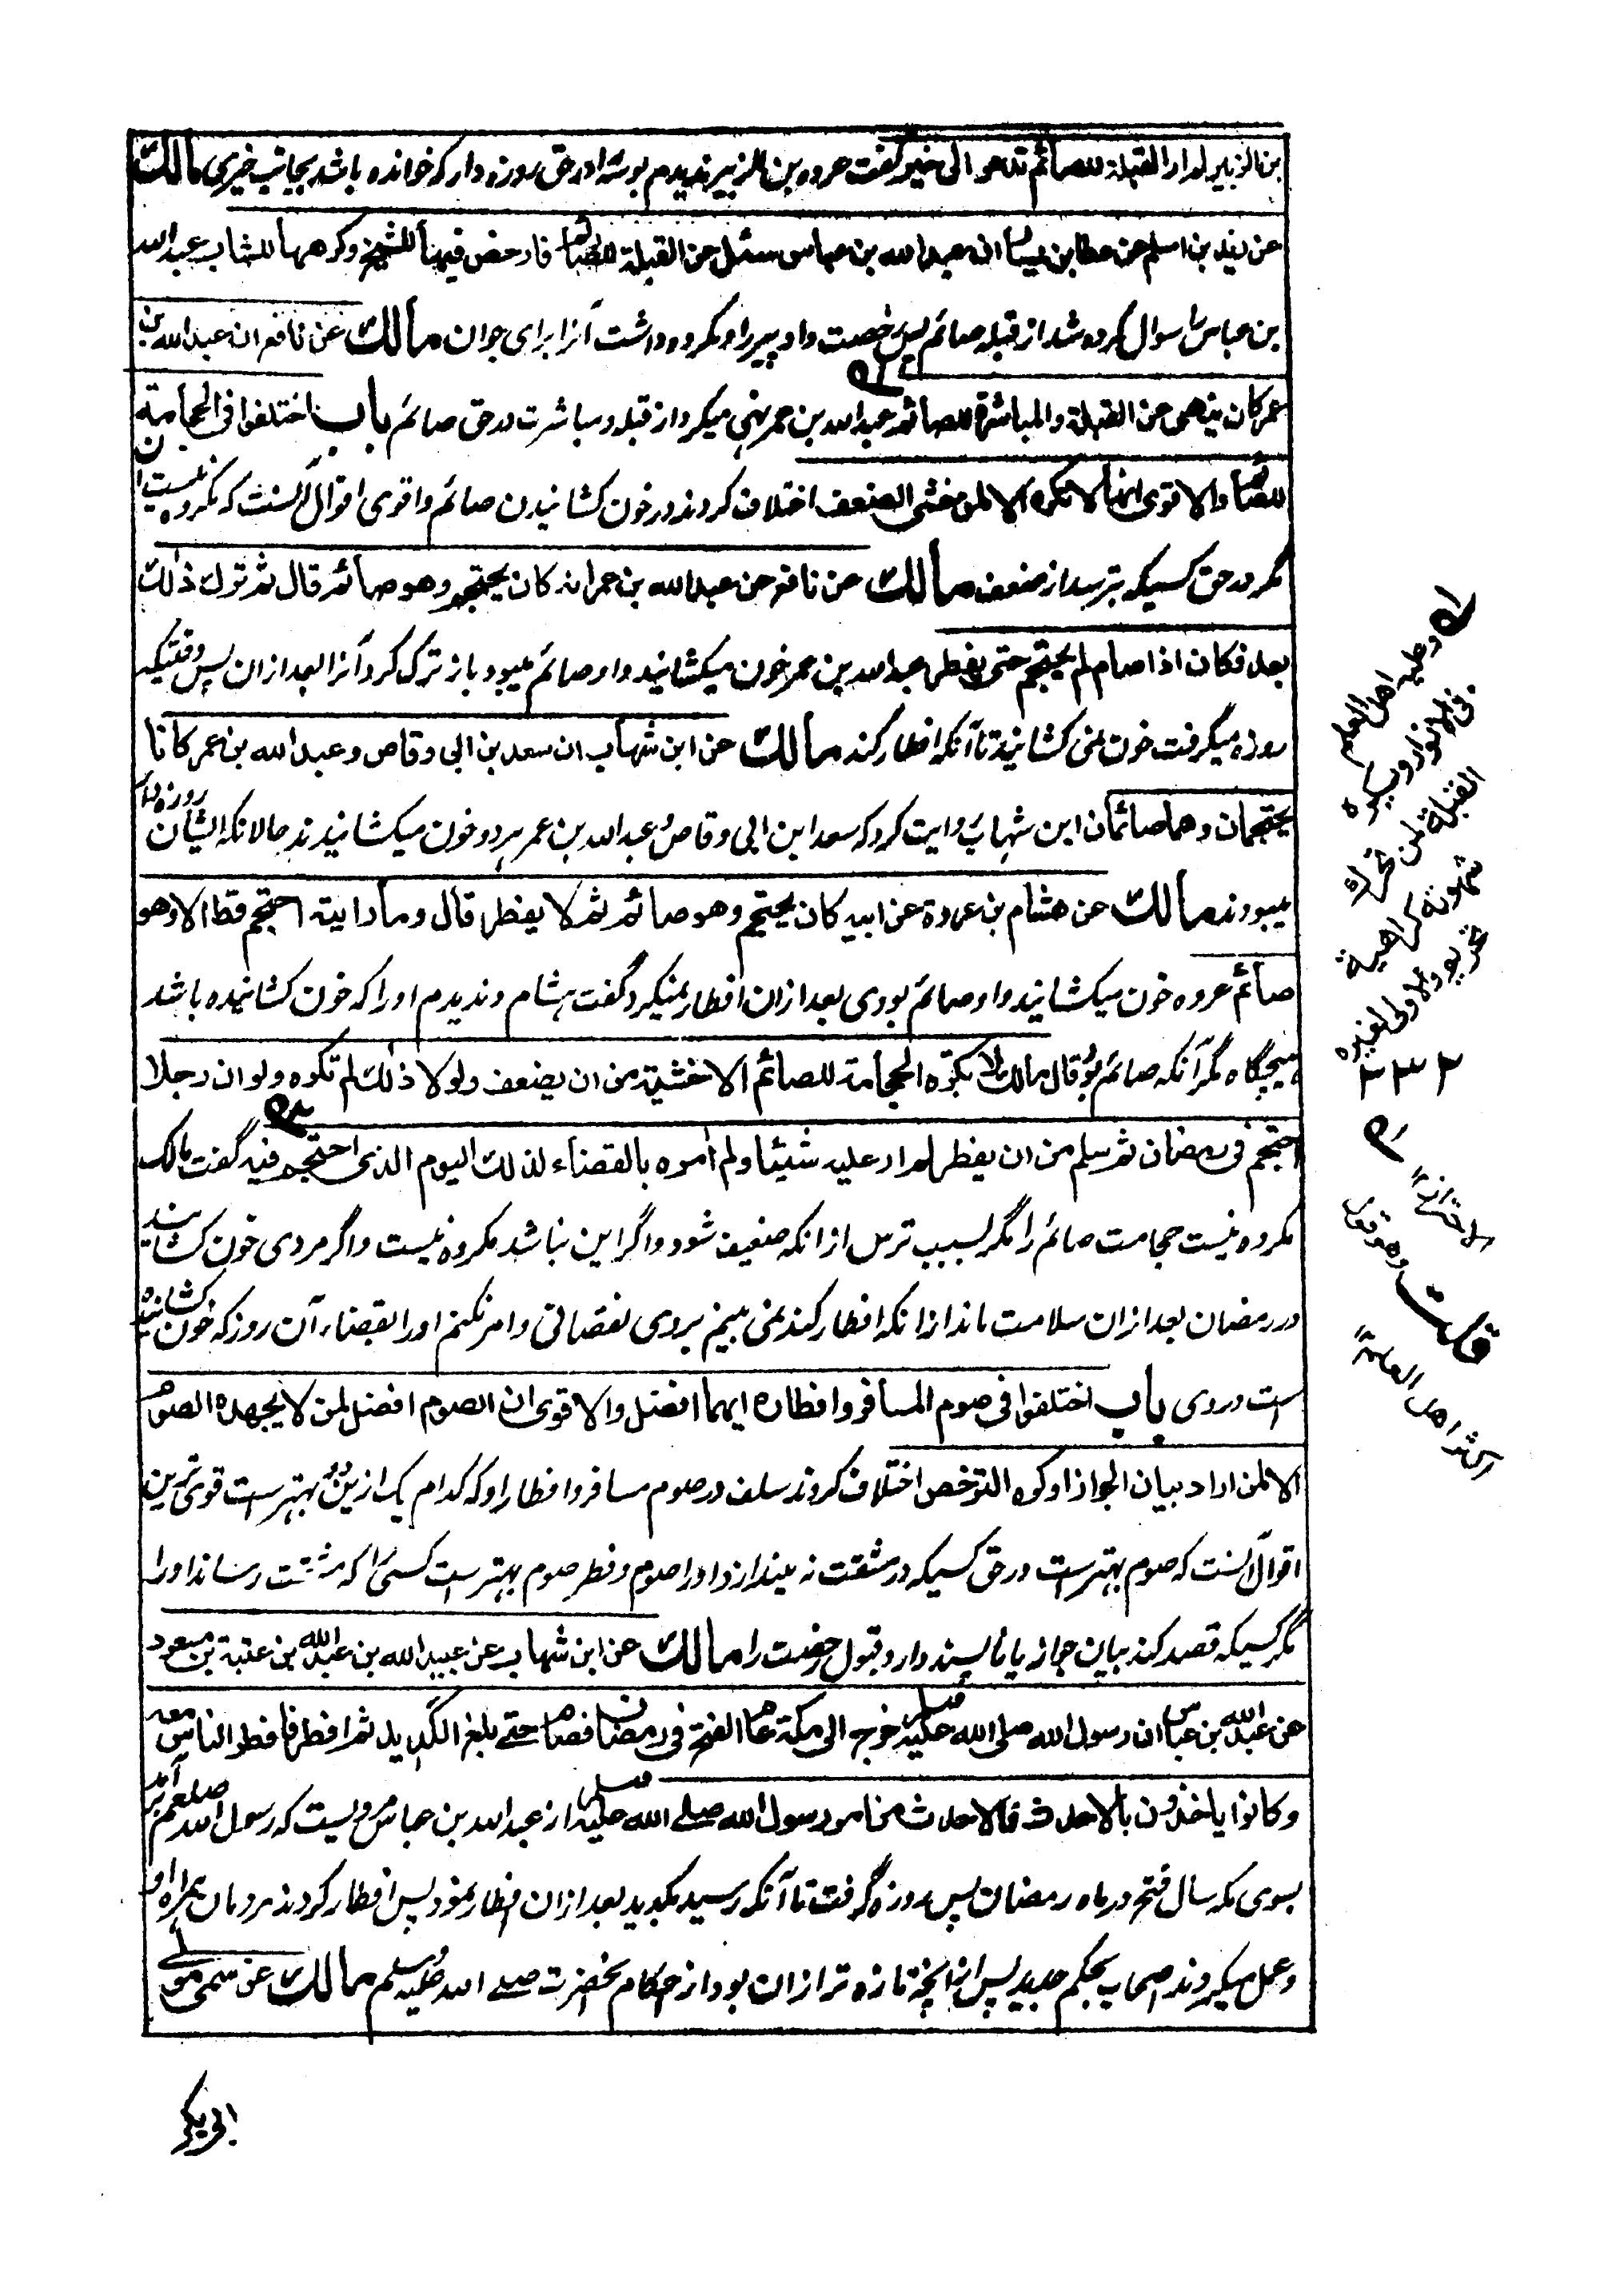 بن الزبیر لم ار القبلة للصائم تدعو الی خیر گفت عروه بن الزبیر ندیدم بوسه را در حق روزه دار که خوانده باشد بجانب خیری مالک
عن زید بن اسلم عن عطا بن یسار ان عبد الله بن عباس سئل عن القبلة للصائم فارخص فیها للشیخ وکرهها للشاب عبد الله
بن عباس را سوال کرده شد از قبله صائم پس رخصت داد پیر را و مکروه داشت آنرا برای جوان مالک عن نافع ان عبد الله بن
عمر کان ینهی عن القبلة والمباشرة للصائم عبد الله بن عمر نهی میکرد از قبله و مباشرت در حق صائم باب اختلفوا فی الحجامة
للصائم والاقوی انها لا تکره الا لمن خشی الضعف اختلاف کردند در خون کشانیدن صائم و اقوی اقوال آنست که مکروه نیست
مگر در حق کسیکه بترسد از ضعف مالک عن نافع عن عبد الله بن عمر انه کان یحتجم وهو صائم قال ثم ترک ذلک
بعد فکان اذا صام لم یحتجم حتی یفطر عبد الله بن عمر خون میکشانید و او صائم میبود باز ترک کرد آنرا بعد ازان پس وقتیکه
روزه میگرفت خون نمی کشانید تا آنکه افطار کند مالک عن ابن شهاب ان سعد بن ابی وقاص وعبد الله بن عمر کانا
یحتجمان وهما صائمان ابن شهاب روایت کرد که سعد ابن ابی وقاص و عبد الله بن عمر هر دو خون میکشانیدند حالانکه ایشان روزه دار
میبودند مالک عن هشام بن عروة عن ابیه کان یحتجم وهو صائم ثم لا یفطر قال وما رایته احتجم قط الا وهو
صائم عروه خون میکشانید و او صائم بودی بعد ازان افطار نمیکرد گفت هشام و ندیدم او را که خون کشانیده باشد
هیچگاه مگر آنکه صائم بود قال مالک لا تکره الحجامة للصائم الا خشیة من ان یضعف ولولا ذلک لم تکره ولو ان رجلا
احتجم فی رمضان ثم سلم من ان یفطر لم ار علیه شیئا ولم آمره بالقضاء لذلک الیوم الذی احتجم فیه گفت مالک
مکروه نیست حجامت صائم را مگر بسبب ترس ازانکه ضعیف شود و اگر این نباشد مکروه نیست و اگر مردی خون کشانید
در رمضان بعد ازان سلامت ماند ازانکه افطار کند نمی بینم بر وی نقصانی و امر نکنم او را بقضاء آن روز که خون کشانیده
است در وی باب اختلفوا فی صوم المسافر وافطاره ایهما افضل والاقوی ان الصوم افضل لمن لا یجهده الصوم
الا لمن اراد بیان الجواز او کره الترخص اختلاف کردند سلف در صوم مسافر و افطار او که کدام یک ازین دو بهتر است قوی ترین
اقوال آنست که صوم بهتر است در حق کسیکه در مشقت نه بیندازد او را صوم و فطر صوم بهتر است کسی را که مشقت رساند او را
مگر کسیکه قصد کند بیان جواز یا ناپسند دارد قبول رخصت را مالک عن ابن شهاب عن عبید الله بن عبد الله بن عتبة بن مسعود
عن عبد الله بن عباس ان رسول الله صلی الله علیه وسلم خرج الی مکة عام الفتح فی رمضان فصام حتی بلغ الکدید ثم افطر فافطر الناس معه
وکانوا یاخذون بالاحدث فالاحدث من امر رسول الله صلی الله علیه وسلم از عبد الله بن عباس مرویست که رسول الله صلعم بر آمد
بسوی مکه سال فتح در ماه رمضان پس روزه گرفت تا آنکه رسید بکدید بعد ازان افطار نمود پس افطار کردند مردمان همراه او
و عمل میکردند اصحاب بحکم جدید پس ازانچه تازه تر ازان بود از احکام آنحضرت صلی الله علیه وسلم مالک عن سمی مولی
ابی بکر
وعلیه اهل العلم
فی الانوار ویکره
القبلة لمن تحرک
شهوته کراهیة
تحریم والاولی لغیره
ترکها ١٢
قلت وهو قول
اکثر اهل العلم